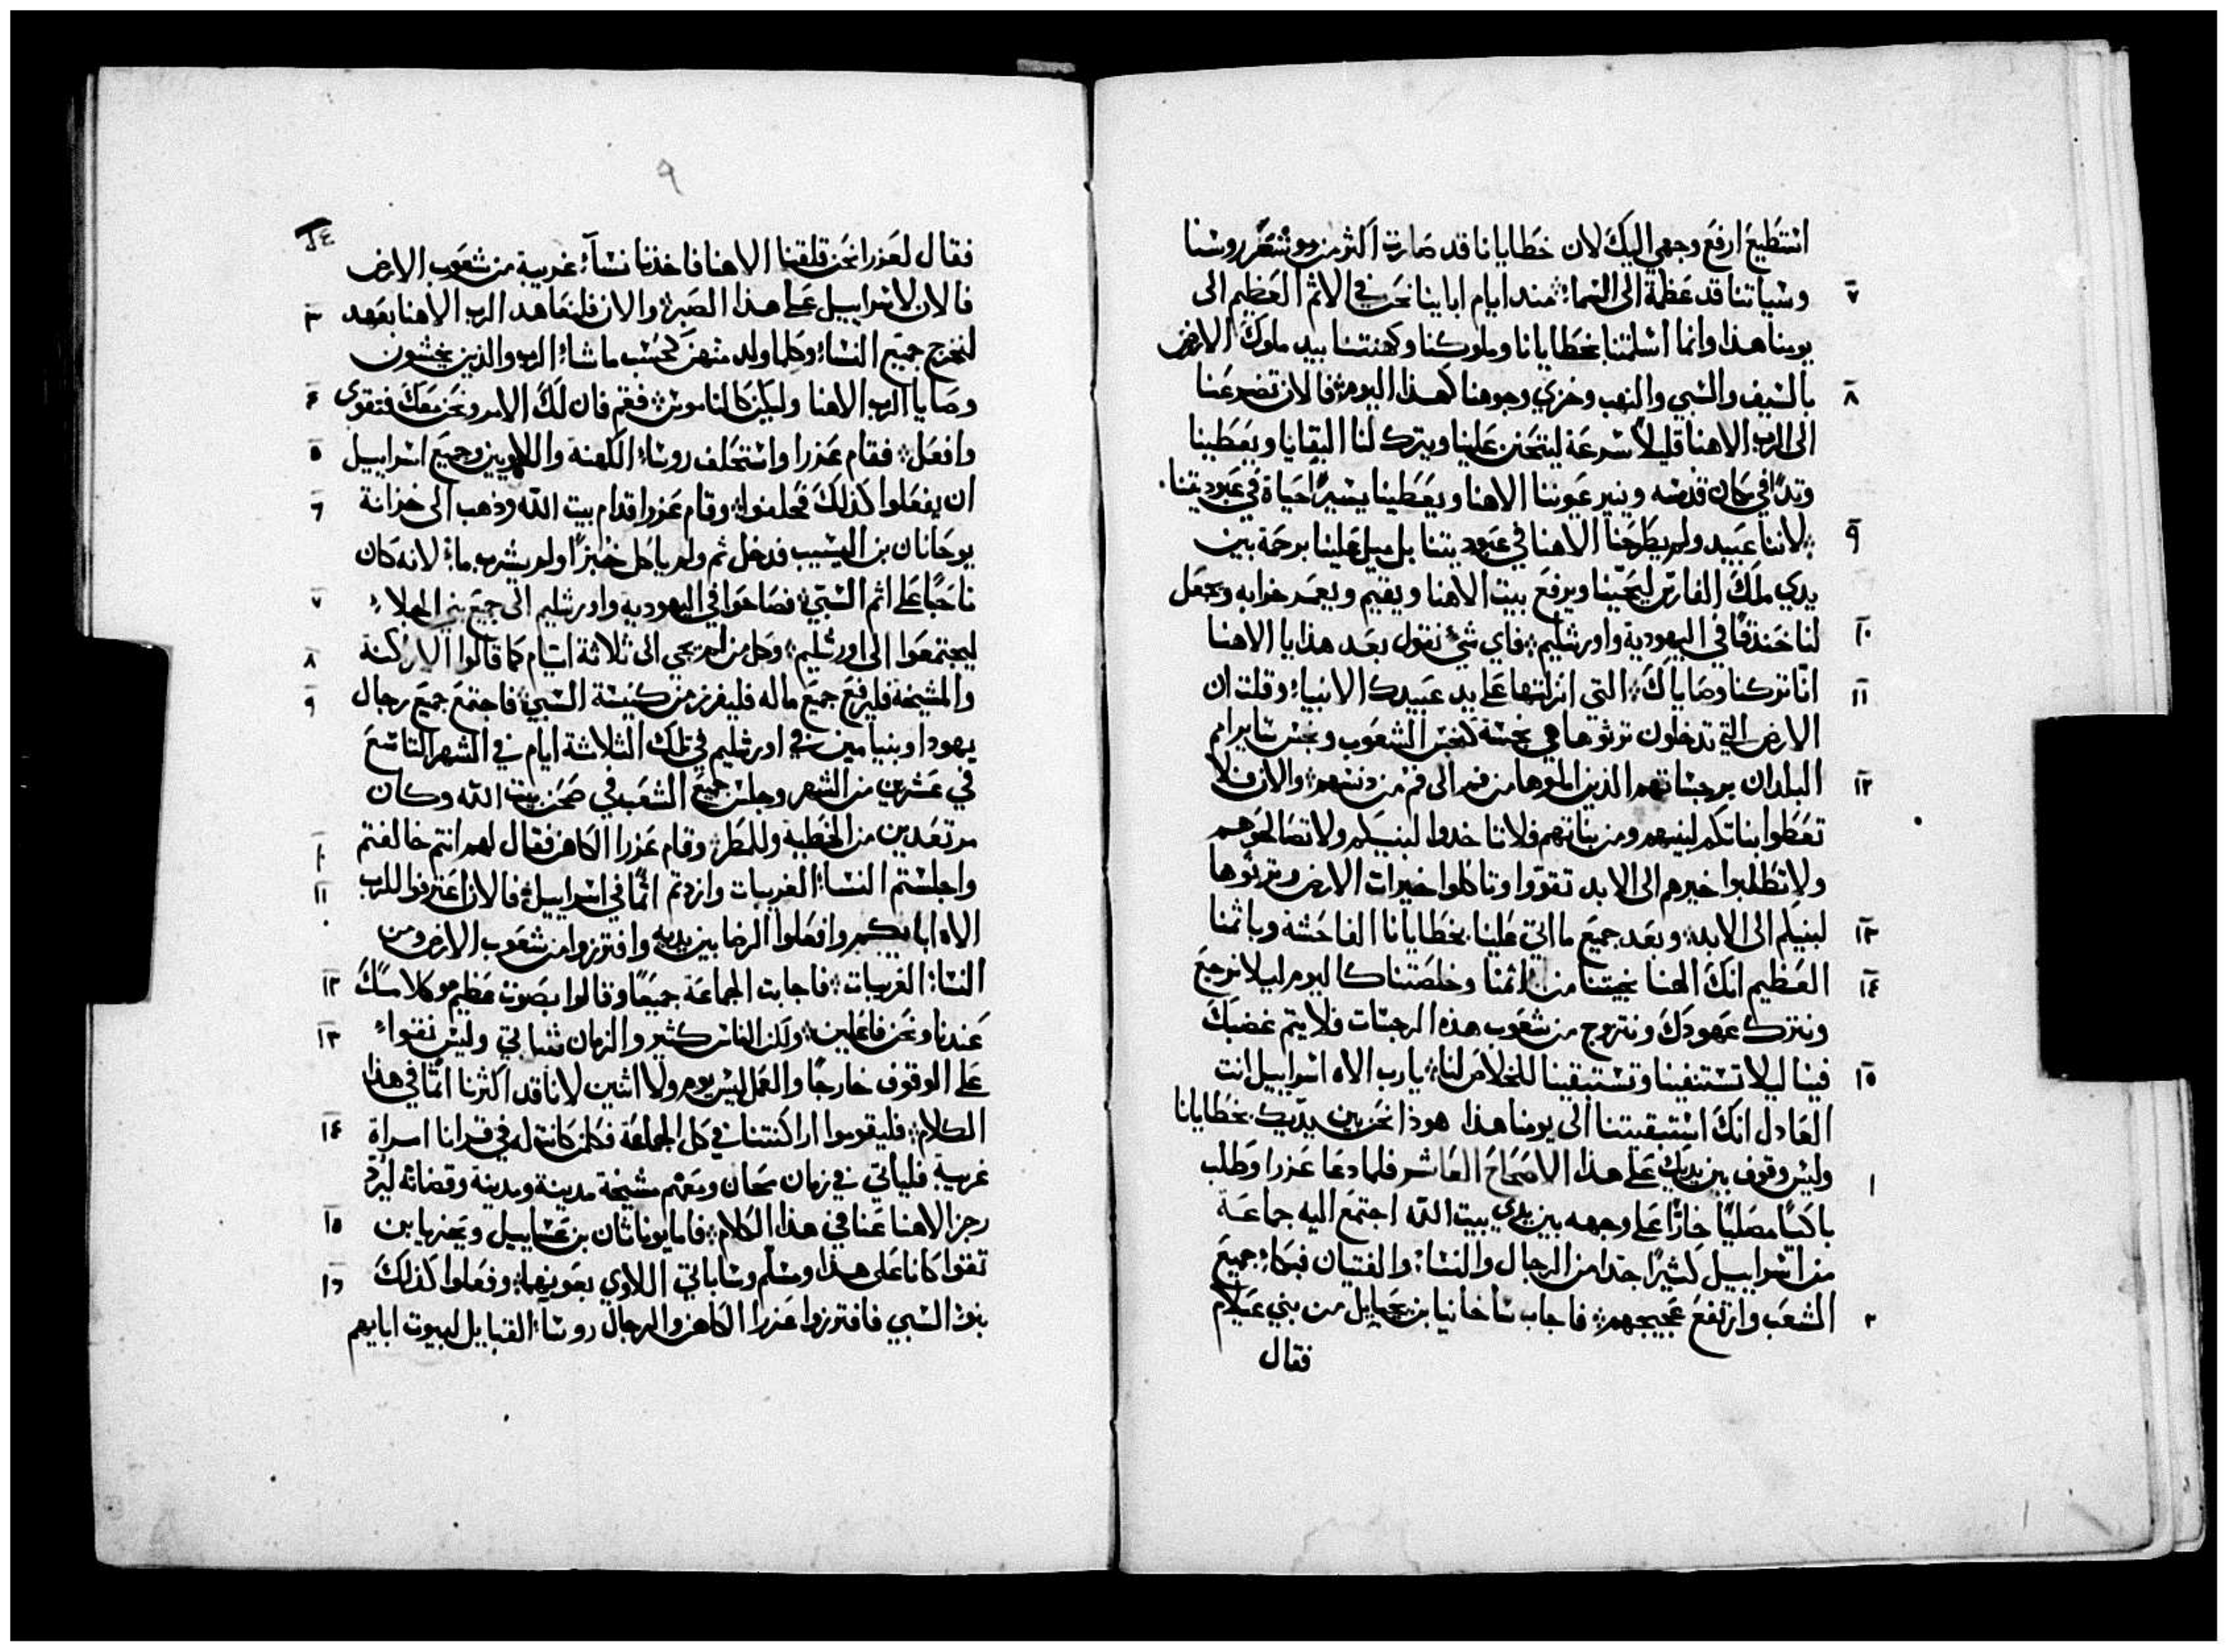 استطيع ارفع وجهي اليك لان خطايانا قد صارت اكثر من شعر روسنا
٧ وسياتنا قد عظمة الى السماء منذ ايام اباينا نحن في الاثم العظيم الى
يومنا هذا وانما اسلمتنا بخطايانا وملوكنا وكهنتنا بيد ملوك الارض
٨ بالسيف والسبي والنهب وخزي وجوهنا كهذا اليوم فالان تضرعنا
الى الرب الاهنا قليلاً سرعة ليتحنن علينا ويترك لنا البقايا ويعطينا
وتدًا في مكان قدسه وينير عيوننا الاهنا ويعطينا يسيرًا حياة في عبوديتنا
٩ لاننا عبيد ولم يطرحنا الاهنا في عبوديتنا بل ميل علينا برحمة بين
يدي ملك الفارس ليحيينا ويرفع بيت الاهنا ويقيم ويعمر خرابه ويجعل
١٠ لنا خندقًا في اليهودية واورشليم فاي شي نقول بعد هذا يا الاهنا
١١ انّا تركنا وصاياك التي انزلتها على يد عبيدك الانبياء وقلت ان
الارض التي تدخلون ترثوها هي نجسة كنجس الشعوب ونجس سايرام
١٢ البلدان برجساتهم الذين املوها من فم الى فم من دنسهم والان فلا
تعطوا بناتكم لبنيهم ومن بناتهم فلا تاخدوا لبنيكم ولا تصالحوهم
ولا تطلبوا خيرهم الى الابد تقوّوا وتاكلوا خيرات الارض وترثوها
١٣ لبنيكم الى الابد وبعد جميع ما اتى علينا بخطايانا الفاحشة وباثمنا
١٤ العظيم انك الهنا نجيتنا من اثمنا وخلصتنا كاليوم ليلا نرجع
ونترك عهودك ونتزوج من شعوب هذه الرجسات فلا يتم غضبك
١٥ فينا ليلا تستنفينا وتستبقينا للخلاص لنا يا رب الاه اسراييل انت
العادل انك استبقيتنا الى يومنا هذا هوذا نحن بين يديك بخطايانا
١ وليس وقوف بين يديك على هذا الاصحاح العاشر فلما دعا عزرا وطلب
باكيًا مصليًا خارًّا على وجهه بين يدي بيت الله اجتمع اليه جماعة
من اسراييل كثيرًا جدًا من الرجال والنساء والفتيان فبكاء جميع
٢ الشعب وارتفع عجيجهم فاجاب ساخانيا بن يحيايل من بني عيلام
فقال
٩
فقال لعزرا نحن قلقنا الاهنا فاخذنا نساء غريبة من شعوب الارض
٣ فالان لاسراييل على هذا الصبر والان فلنعاهد الرب الاهنا بعهد
لنخرج جميع النساء وكلما ولد منهن كحسب ما شاء الرب والذين يخشون
٤ وصايا الرب الاهنا وليكن كالناموس فقم فان لك الامر ونحن معك فتقوى
٥ وافعل فقام عزرا واستحلف روساء الكهنة واللاويين وجميع اسراييل
٦ ان يفعلوا كذلك فحلفوا وقام عزرا قدام بيت الله وذهب الى خزانة
يوحانان بن اليسيب فدخل ثم ولم ياكل خبزًا ولم يشرب ماء لانه كان
٧ ناحبًا على اثم السبي فصاحوا في اليهودية واورشليم الى جميع بني الجلاء
٨ ليجتمعوا الى اورشليم وكل من لم يجي الى ثلاثة ايام كما قالوا الاراكنة
٩ والمشيخة فليرفع جميع ماله فليفرز من كنيسة السبي فاجتمع جميع رجال
يهودا وبنيامين في اورشليم في تلك الثلاثة ايام في الشهر التاسع
في عشرين من الشهر وجلس جميع الشعب في صحن بيت الله وكان
١٠ مرتعدين من الخطية وللمطر وقام عزرا الكاهن فقال لهم انتم خالفتم
١١ واجلستم النساء الغريبات وازدتم اثمًا في اسراييل فالان اعترفوا للرب
الاه اباتكم وافعلوا الرضا بين يديه وافترزوا من شعوب الارض ومن
١٢ النساء الغريبات فاجابت الجماعة جميعًا وقالوا بصوت عظيم هو كلامك
١٣ عندنا ونحن فاعلين ولكن الناس كثير والزمان شتاتي وليس نقواء
على الوقوف خارجًا والعمل ليس يوم ولا اثنين لانا قد اكثرنا اثمًا في هذا
١٤ الكلام فليقوموا اراكنتنا في كل الجماعة فكلمن كانت له في قرانا امراة
غريبة فلياتي في زمان ومعهم مشيخة مدينة ومدينة وقضاته ليرد
١٥ رجز الاهنا عنا في هذا الكلام فاما يوناثان بن عساييل ويحزيا بن
١٦ تقوا كانا على هذا ومسلم وساباتي اللاوي يعوينهما وفعلوا كذلك
بنو السبي فافترزوا عزرا الكاهن والرجال روساء القبايل لبيوت ابايهم